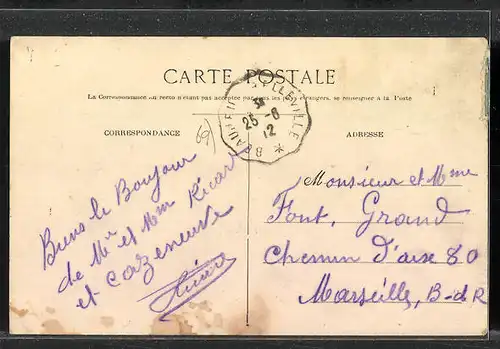 CARTE POSTALE
La Correspondance au recto n'est pas acceptée par tous les pays étrangers, se renseigner à la Poste
CORRESPONDANCE
ADRESSE
25-8
12
69)
Biens le Bonjour
de Mr et Mm Ricard
et Cazeneuve
Monsieur et Mme
Font, Grand
Chemin d'aix 80
Marseille, B-d-R